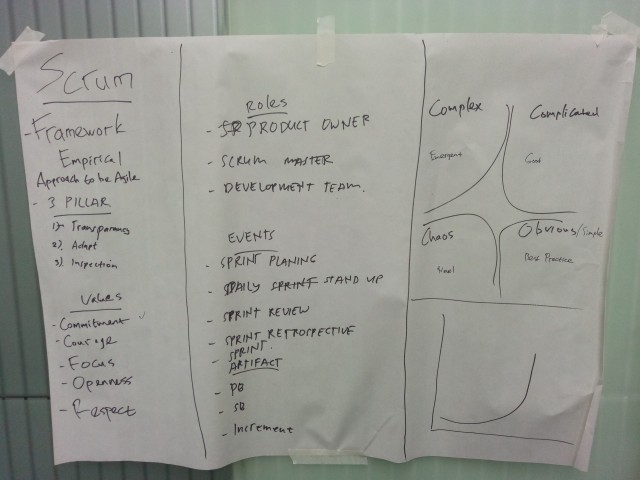 Scrum
- Framework
Empirical
Approach to be Agile
- 3 PILLAR
1) Transparancy
2) Adapt
3) Inspection
Values
- Commitment
- Courage
- Focus
- Openness
- Respect
Roles
- PRODUCT OWNER
- SCRUM MASTER
- DEVELOPMENT TEAM.
EVENTS
- SPRINT PLANING
- DAILY SPRINT STAND UP
- SPRINT REVIEW
- SPRINT RETROSPECTIVE
- SPRINT.
ARTIFACT
- PB
- SB
- Increment
Complex
Complicated
Emergent
Good
Chaos
Obvious/Simple
Novel
Best Practice